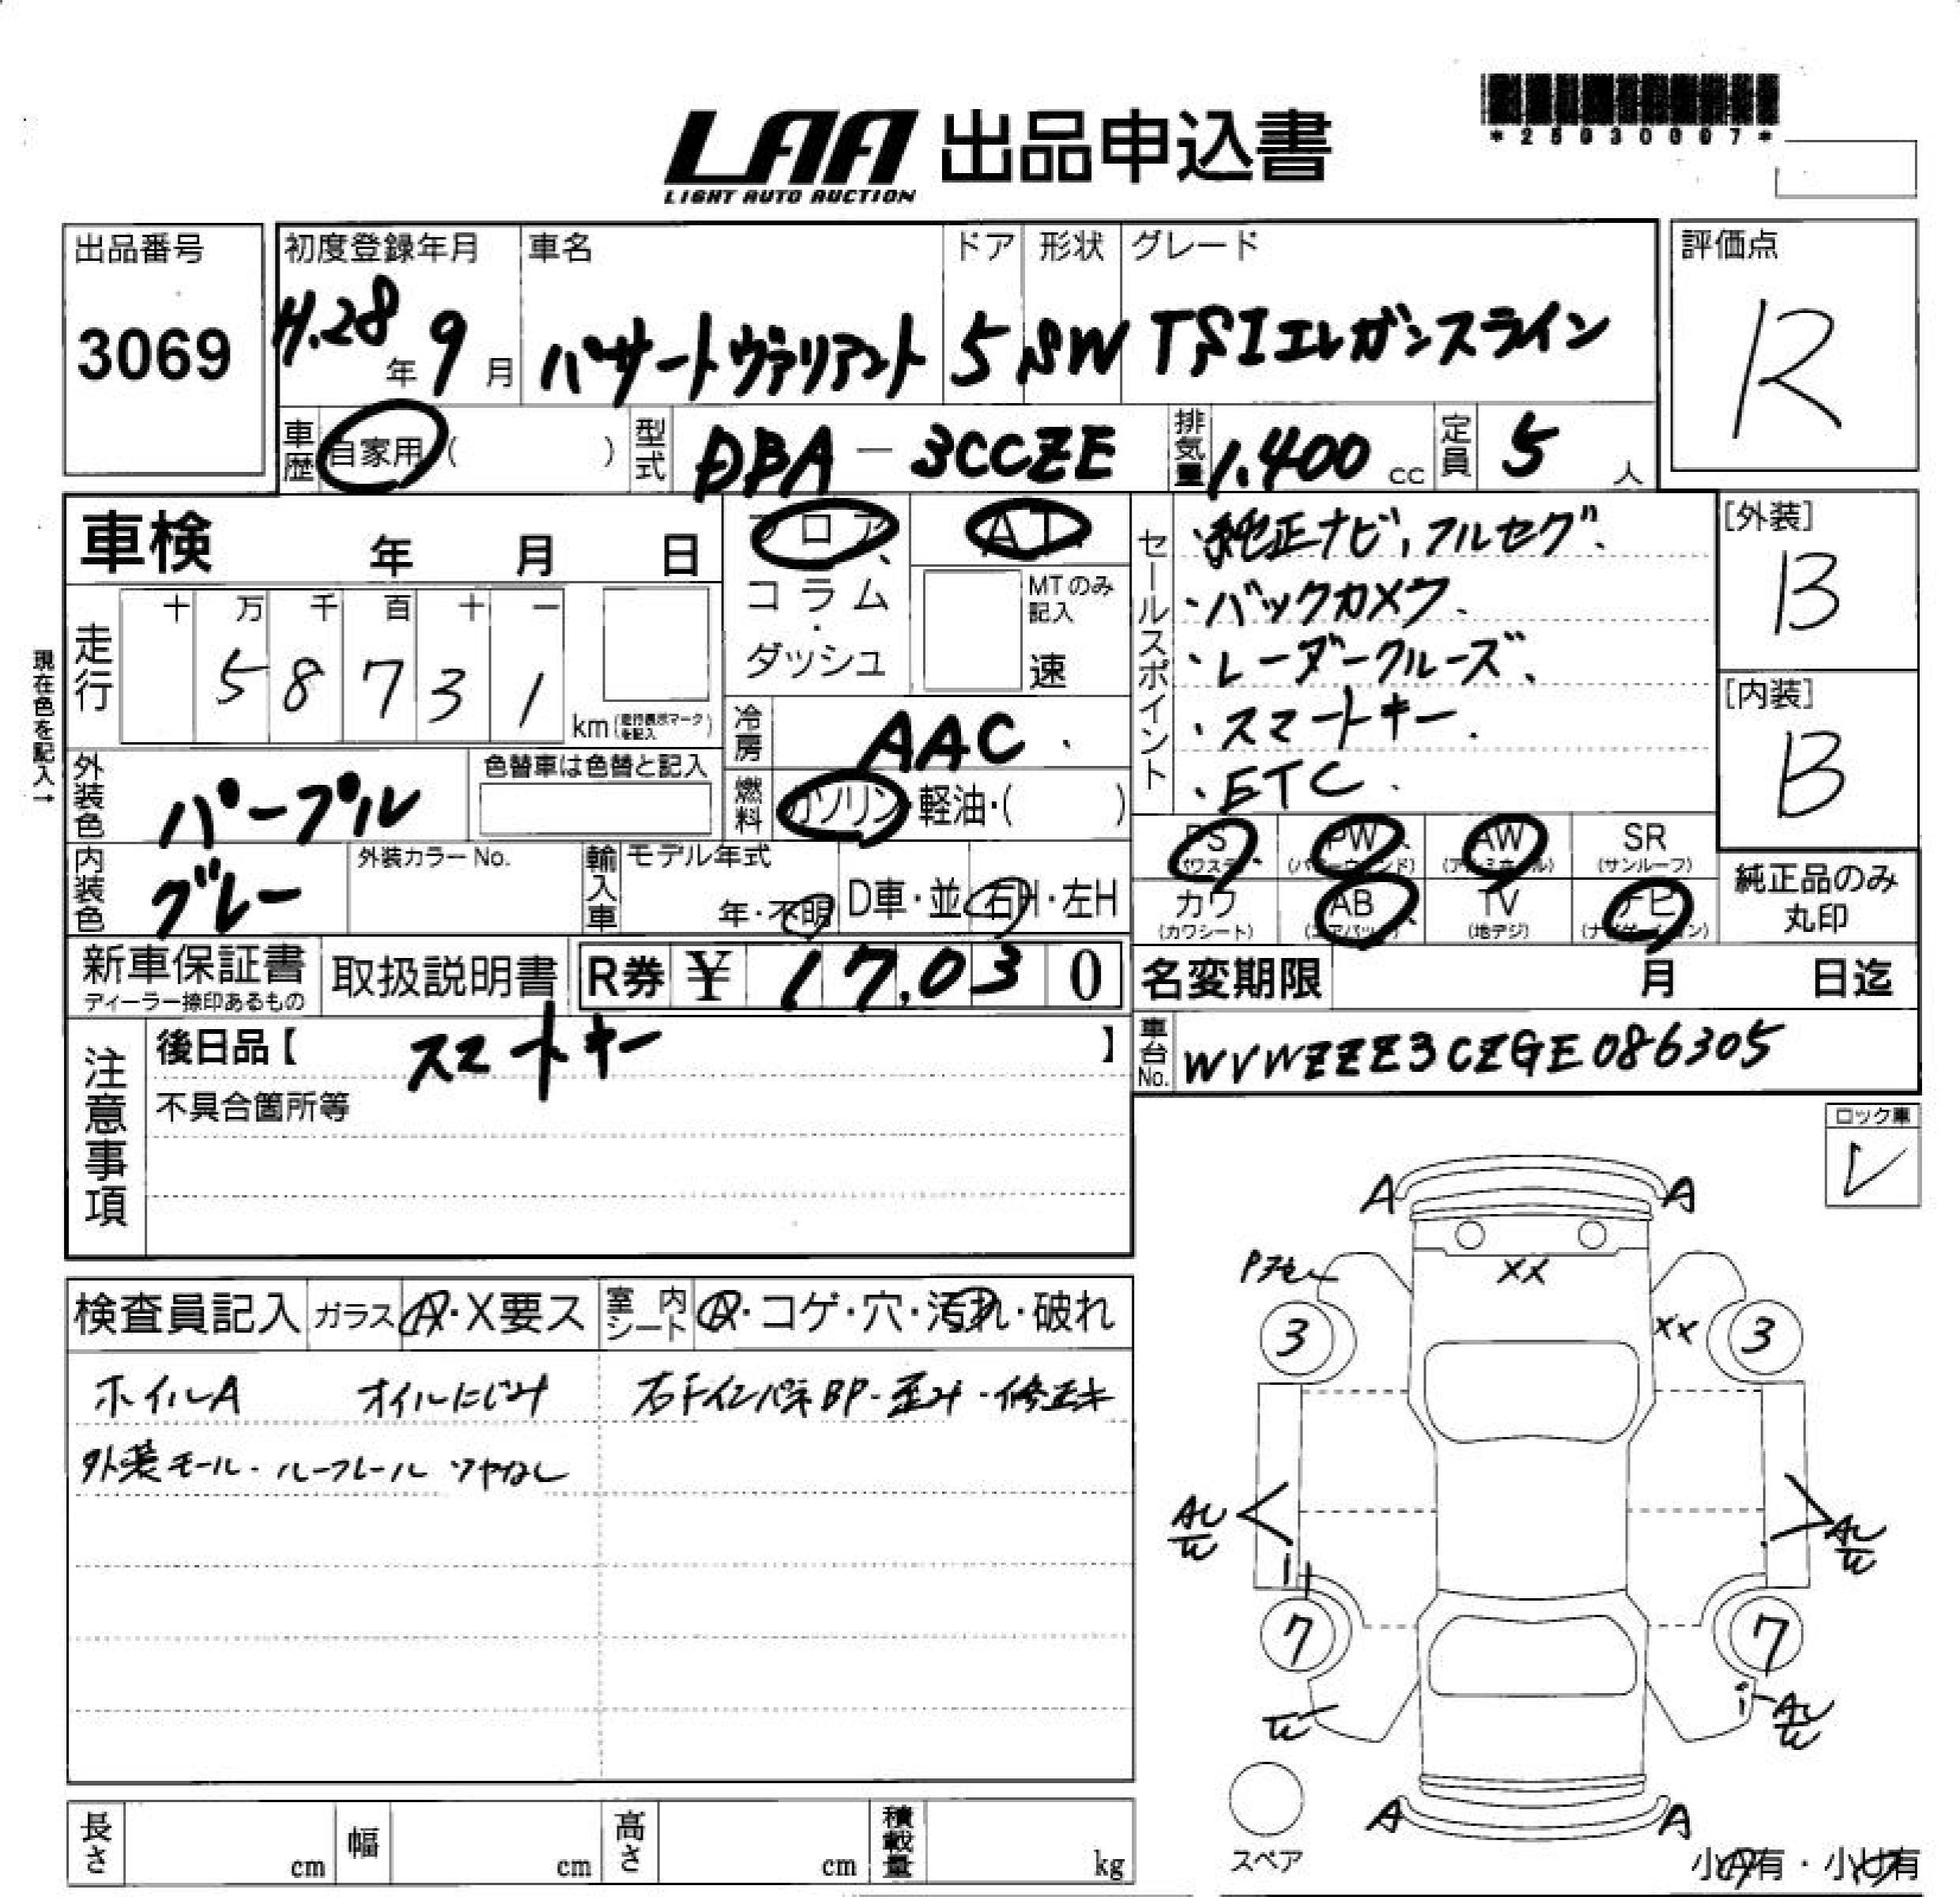 *25030007*
LAA 出品申込書
LIGHT AUTO AUCTION
出品番号 3069
初度登録年月 H.28年 9月
車名 パサートヴァリアント
ドア 5
形状 SW
グレード TSIエレガンスライン
評価点 R
車歴 自家用 ( )
型式 DBA-3CCZE
排気量 1.400 cc
定員 5 人
車検 年 月 日
フロア
コラム
ダッシュ
AT
MTのみ記入
速
セールスポイント
・純正ナビ,フルセグ.
・バックカメラ.
・レーダークルーズ.
・スマートキー.
・ETC.
[外装] B
[内装] B
現在色を記入→
走行 十 万 千 百 十 一
5 8 7 3 1 km (走行表示マークを記入)
冷房 AAC.
外装色 パープル
色替車は色替と記入
燃料 ガソリン・軽油・( )
内装色 グレー
外装カラーNo.
輸入車 モデル年式
年・不明
D車・並 右H・左H
PS (パワステ) PW (パワーウィンド) AW (アルミホイール) SR (サンルーフ)
カワ (カワシート) AB (エアバック) TV (地デジ) ナビ (ナビゲーション)
純正品のみ
丸印
新車保証書
ディーラー捺印あるもの
取扱説明書
R券 ¥ 17,030
名変期限 月 日迄
注意事項
後日品【 スマートキー 】
不具合箇所等
車台No. WVWZZZ3CZGE086305
ロック車
レ
検査員記入 ガラス A・X要ス 室内シート A・コゲ・穴・汚れ・破れ
ホイルA オイルにじみ 右Fインパネ BP-歪み・修正キ
外装モール・ルーフレール ツヤなし
A A
XX
XX
3 3
AU AU
7 7
AU
A A
スペア
小A有・小U有
長さ cm 幅 cm 高さ cm 積載量 kg